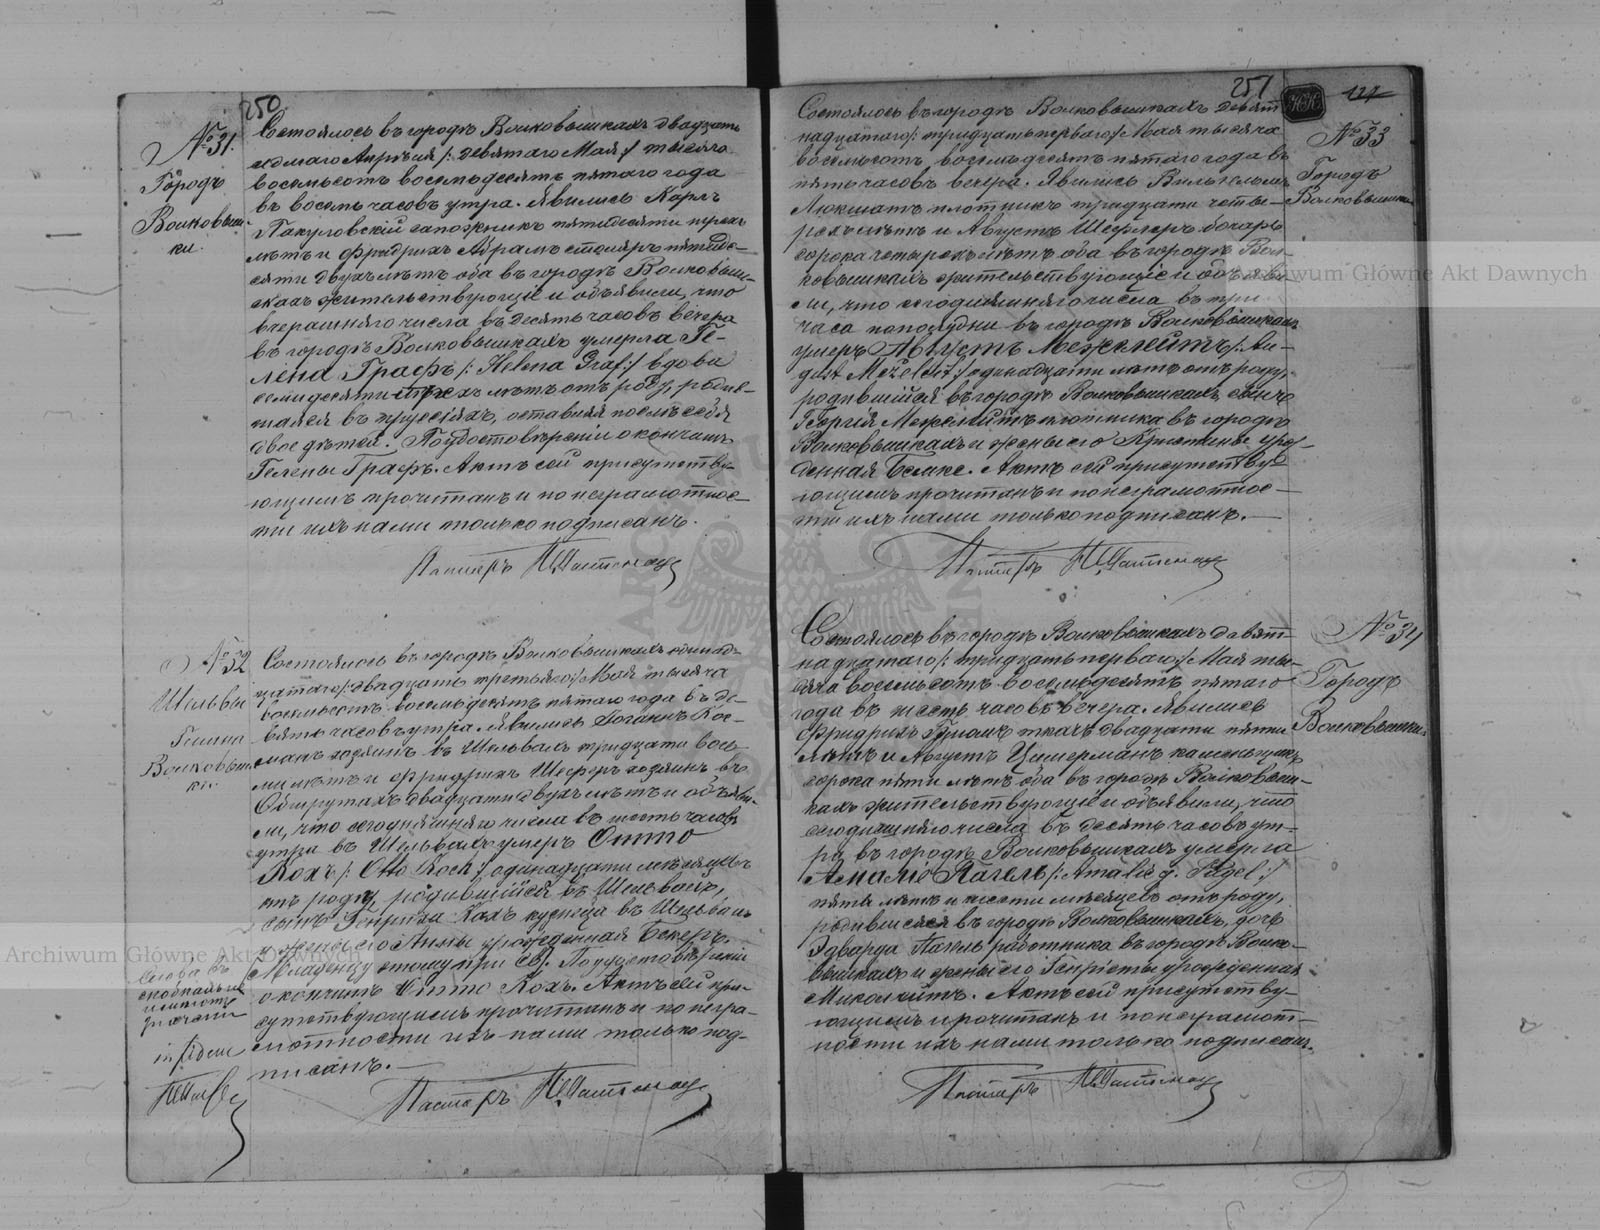 250
№ 31.
Городъ
Волковыш-
ки.
Состоялось въ городѣ Волковышкахъ двадцать
седьмаго Апрѣля /: девятаго Мая :/ тысяча
восемьсотъ восемьдесятъ пятаго года
въ восемь часовъ утра. Явились Карлъ
сапожникъ пятидесяти трехъ
лѣтъ и Фридрихъ Абрамъ столяръ пятиде-
сяти двухъ лѣтъ оба въ городѣ Волковыш-
кахъ жительствующіе и объявили, что
вчерашняго числа въ десять часовъ вечера
въ городѣ Волковышкахъ умерла Ге-
лена Графъ /: Helena Graf :/ вдова
семидесяти трехъ лѣтъ отъ роду, родив-
шаяся въ Пруссіяхъ, оставивъ послѣ себя
двое дѣтей. По удостовѣреніи о кончинѣ
Гелены Графъ. Актъ сей присутству-
ющимъ прочитанъ и по неграмотнос-
ти ихъ нами только подписанъ.
Пасторъ
№ 32
Шельвы
Гмина
Волковыш-
ки.
Состоялось въ городѣ Волковышкахъ одинад-
цатаго /: двадцать третьяго :/ Мая тысяча
восемьсотъ восемьдесятъ пятаго года въ де-
вять часовъ утра. Явились Іоганъ Кос-
манъ хозяинъ въ Шельвахъ тридцати вось-
ми лѣтъ и Фридрихъ Шеферъ хозяинъ въ
двадцати двухъ лѣтъ и объяви-
ли, что сегодняшняго числа въ шесть часовъ
утра въ Шельвахъ умеръ Отто
Кохъ /: Otto Koch :/ одинадцати мѣсяцевъ
отъ роду, родившійся въ Шельвахъ,
сынъ Генриха Кохъ кузнеца въ Шельвахъ
и жены его Анны урожденная Бекеръ.
Младенцу этому при Св. По удостовѣреніи
о кончинѣ Отто Кохъ. Актъ сей при-
сутствующимъ прочитанъ и по негра-
мотности ихъ нами только под-
писанъ.
Слова въ
in fidem
Пасторъ
251
127
№ 33
Городъ
Волковышки
Состоялось въ городѣ Волковышкахъ девят-
надцатаго /: тридцать перваго :/ Мая тысяча
восемьсотъ восемьдесятъ пятаго года въ
пять часовъ вечера. Явились Вильгельмъ
плотникъ тридцати четы-
рехъ лѣтъ и Августъ Шефлеръ бочаръ
сорока четырехъ лѣтъ оба въ городѣ Вол-
ковышкахъ жительствующіе и объяви-
ли, что сегодняшняго числа въ три
часа пополудни въ городѣ Волковышкахъ
умеръ Августъ Межелейтъ /: Au-
gust Meželeit :/ одинадцати лѣтъ отъ роду,
родившійся въ городѣ Волковышкахъ сынъ
Георгія Межелейтъ плотника въ городѣ
Волковышкахъ и жены его Кристины урож-
денная Бемке. Актъ сей присутству-
ющимъ прочитанъ и по неграмотнос-
ти ихъ нами только подписанъ.
Пасторъ
№ 34
Городъ
Волковышки
Состоялось въ городѣ Волковышкахъ девят-
надцатаго /: тридцать перваго :/ Мая ты-
сяча восемьсотъ восемьдесятъ пятаго
года въ шесть часовъ вечера. Явились
Фридрихъ ткачъ двадцати пяти
лѣтъ и Августъ Цимерманъ каменьщикъ
сорока пяти лѣтъ оба въ городѣ Волковыш-
кахъ жительствующіе и объявили, что
сегодняшняго числа въ десять часовъ ут-
ра въ городѣ Волковышкахъ умерла
Амалія Пагель /: Amalie g. Pagel :/
пяти лѣтъ и шести мѣсяцевъ отъ роду,
родившаяся въ городѣ Волковышкахъ, дочь
Эдварда Пагель работника въ городѣ Волко-
вышкахъ и жены его Генріеты урожденная
Миколейтъ. Актъ сей присутству-
ющимъ прочитанъ и по неграмот-
ности ихъ нами только подписанъ.
Пасторъ
Archiwum Główne Akt Dawnych
Archiwum Główne Akt Dawnych